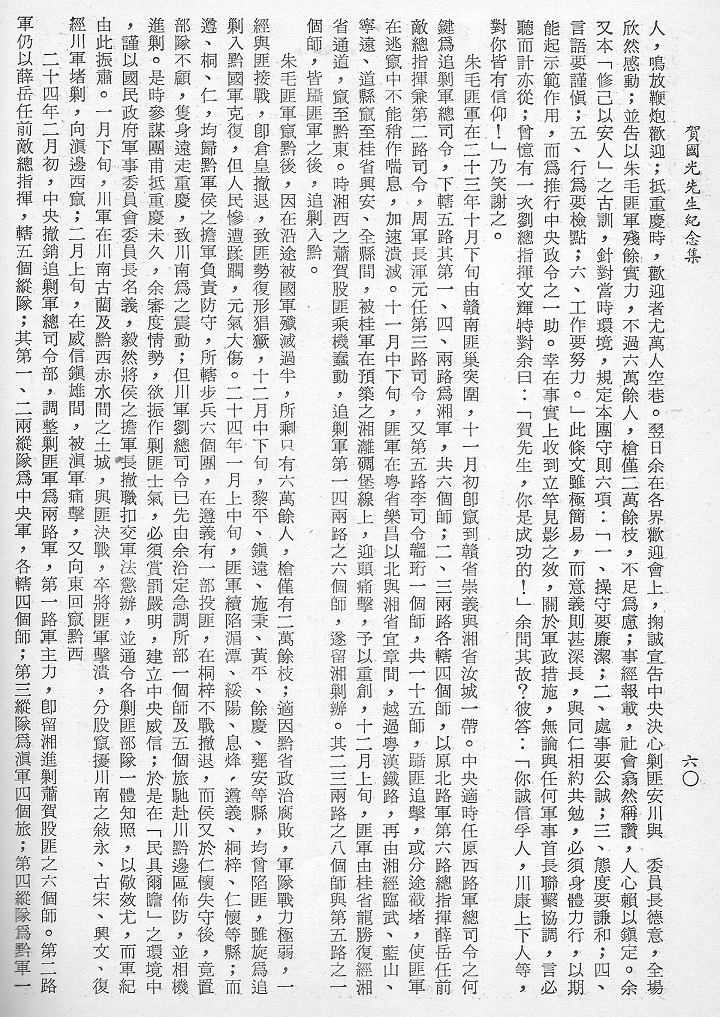 賀國光先生紀念集
六〇
人，鳴放鞭炮歡迎；抵重慶時，歡迎者尤萬人空巷。翌日余在各界歡迎會上，掬誠宣告中央決心剿匪安川與　委員長德意，全場
欣然感動；並告以朱毛匪軍殘餘實力，不過六萬餘人，槍僅二萬餘枝，不足爲慮；事經報載，社會翕然稱讚，人心賴以鎮定。余
又本「修己以安人」之古訓，針對當時環境，規定本團守則六項：「一、操守要廉潔；二、處事要公誠；三、態度要謙和；四、
言語要謹慎；五、行爲要檢點；六、工作要努力。」此條文雖極簡易，而意義則甚深長，與同仁相約共勉，必須身體力行，以期
能起示範作用，而爲推行中央政令之一助。幸在事實上收到立竿見影之效，關於軍政措施，無論與任何軍事首長聯繫協調，言必
聽而計亦從；曾憶有一次劉總指揮文輝特對余曰：「賀先生，你是成功的！」余問其故？彼答：「你誠信孚人，川康上下人等，
對你皆有信仰！」乃笑謝之。
朱毛匪軍在二十三年十月下旬由贛南匪巢突圍，十一月初卽竄到贛省崇義與湘省汝城一帶。中央適時任原西路軍總司令之何
鍵爲追剿軍總司令，下轄五路其第一、四、兩路爲湘軍，共六個師；二、三兩路各轄四個師，以原北路軍第六路總指揮薛岳任前
敵總指揮兼第二路司令，周軍長渾元任第三路司令，又第五路李司令韞珩一個師，共一十五師，躡匪追擊，或分途截堵，使匪軍
在逃竄中不能稍作喘息，加速潰滅。十一月中下旬，匪軍在粤省樂昌以北與湘省宜章間，越過粤漢鐵路，再由湘經臨武、藍山、
寧遠、道縣竄至桂省興安、全縣間，被桂軍在預築之湘灕碉堡線上，迎頭痛擊，予以重創，十二月上旬，匪軍由桂省龍勝復經湘
省通道，竄至黔東。時湘西之蕭賀股匪乘機蠢動，追剿軍第一四兩路之六個師，遂留湘剿辦。其二三兩路之八個師與第五路之一
個師，皆躡匪軍之後，追剿入黔。
朱毛匪軍竄黔後，因在沿途被國軍殲滅過半，所剩只有六萬餘人，槍僅有二萬餘枝；適因黔省政治腐敗，軍隊戰力極弱，一
經與匪接戰，卽倉皇撤退，致匪勢復形猖獗，十二月中下旬，黎平、鎮遠、施秉、黃平、餘慶、甕安等縣，均曾陷匪，雖旋爲追
剿入黔國軍克復，但人民慘遭蹂躪，元氣大傷。二十四年一月上中旬，匪軍續陷湄潭、綏陽、息烽，遵義、桐梓、仁懷等縣；而
遵、桐、仁，均歸黔軍侯之擔軍負責防守，所轄步兵六個團，在遵義有一部投匪，在桐梓不戰撤退，而侯又於仁懷失守後，竟置
部隊不顧，隻身遠走重慶，致川南爲之震動；但川軍劉總司令已先由余洽定急調所部一個師及五個旅馳赴川黔邊區佈防，並相機
進剿。是時參謀團甫抵重慶未久，余審度情勢，欲振作剿匪士氣，必須賞罰嚴明，建立中央威信；於是在「民具爾瞻」之環境中
，謹以國民政府軍事委員會委員長名義，毅然將侯之擔軍長撤職扣交軍法懲辦，並通令各剿匪部隊一體知照，以儆效尤，而軍紀
由此振肅。一月下旬，川軍在川南古藺及黔西赤水間之土城，與匪決戰，卒將匪軍擊潰，分股竄擾川南之敍永、古宋、興文、復
經川軍堵剿，向滇邊西竄；二月上旬，在威信鎮雄間，被滇軍痛擊，又向東回竄黔西
二十四年二月初，中央撤銷追剿軍總司令部，調整剿匪軍爲兩路軍，第一路軍主力，卽留湘進剿蕭賀股匪之六個師。第二路
軍仍以薛岳任前敵總指揮，轄五個縱隊；其第一、二兩縱隊爲中央軍，各轄四個師；第三縱隊爲滇軍四個旅；第四縱隊爲黔軍一